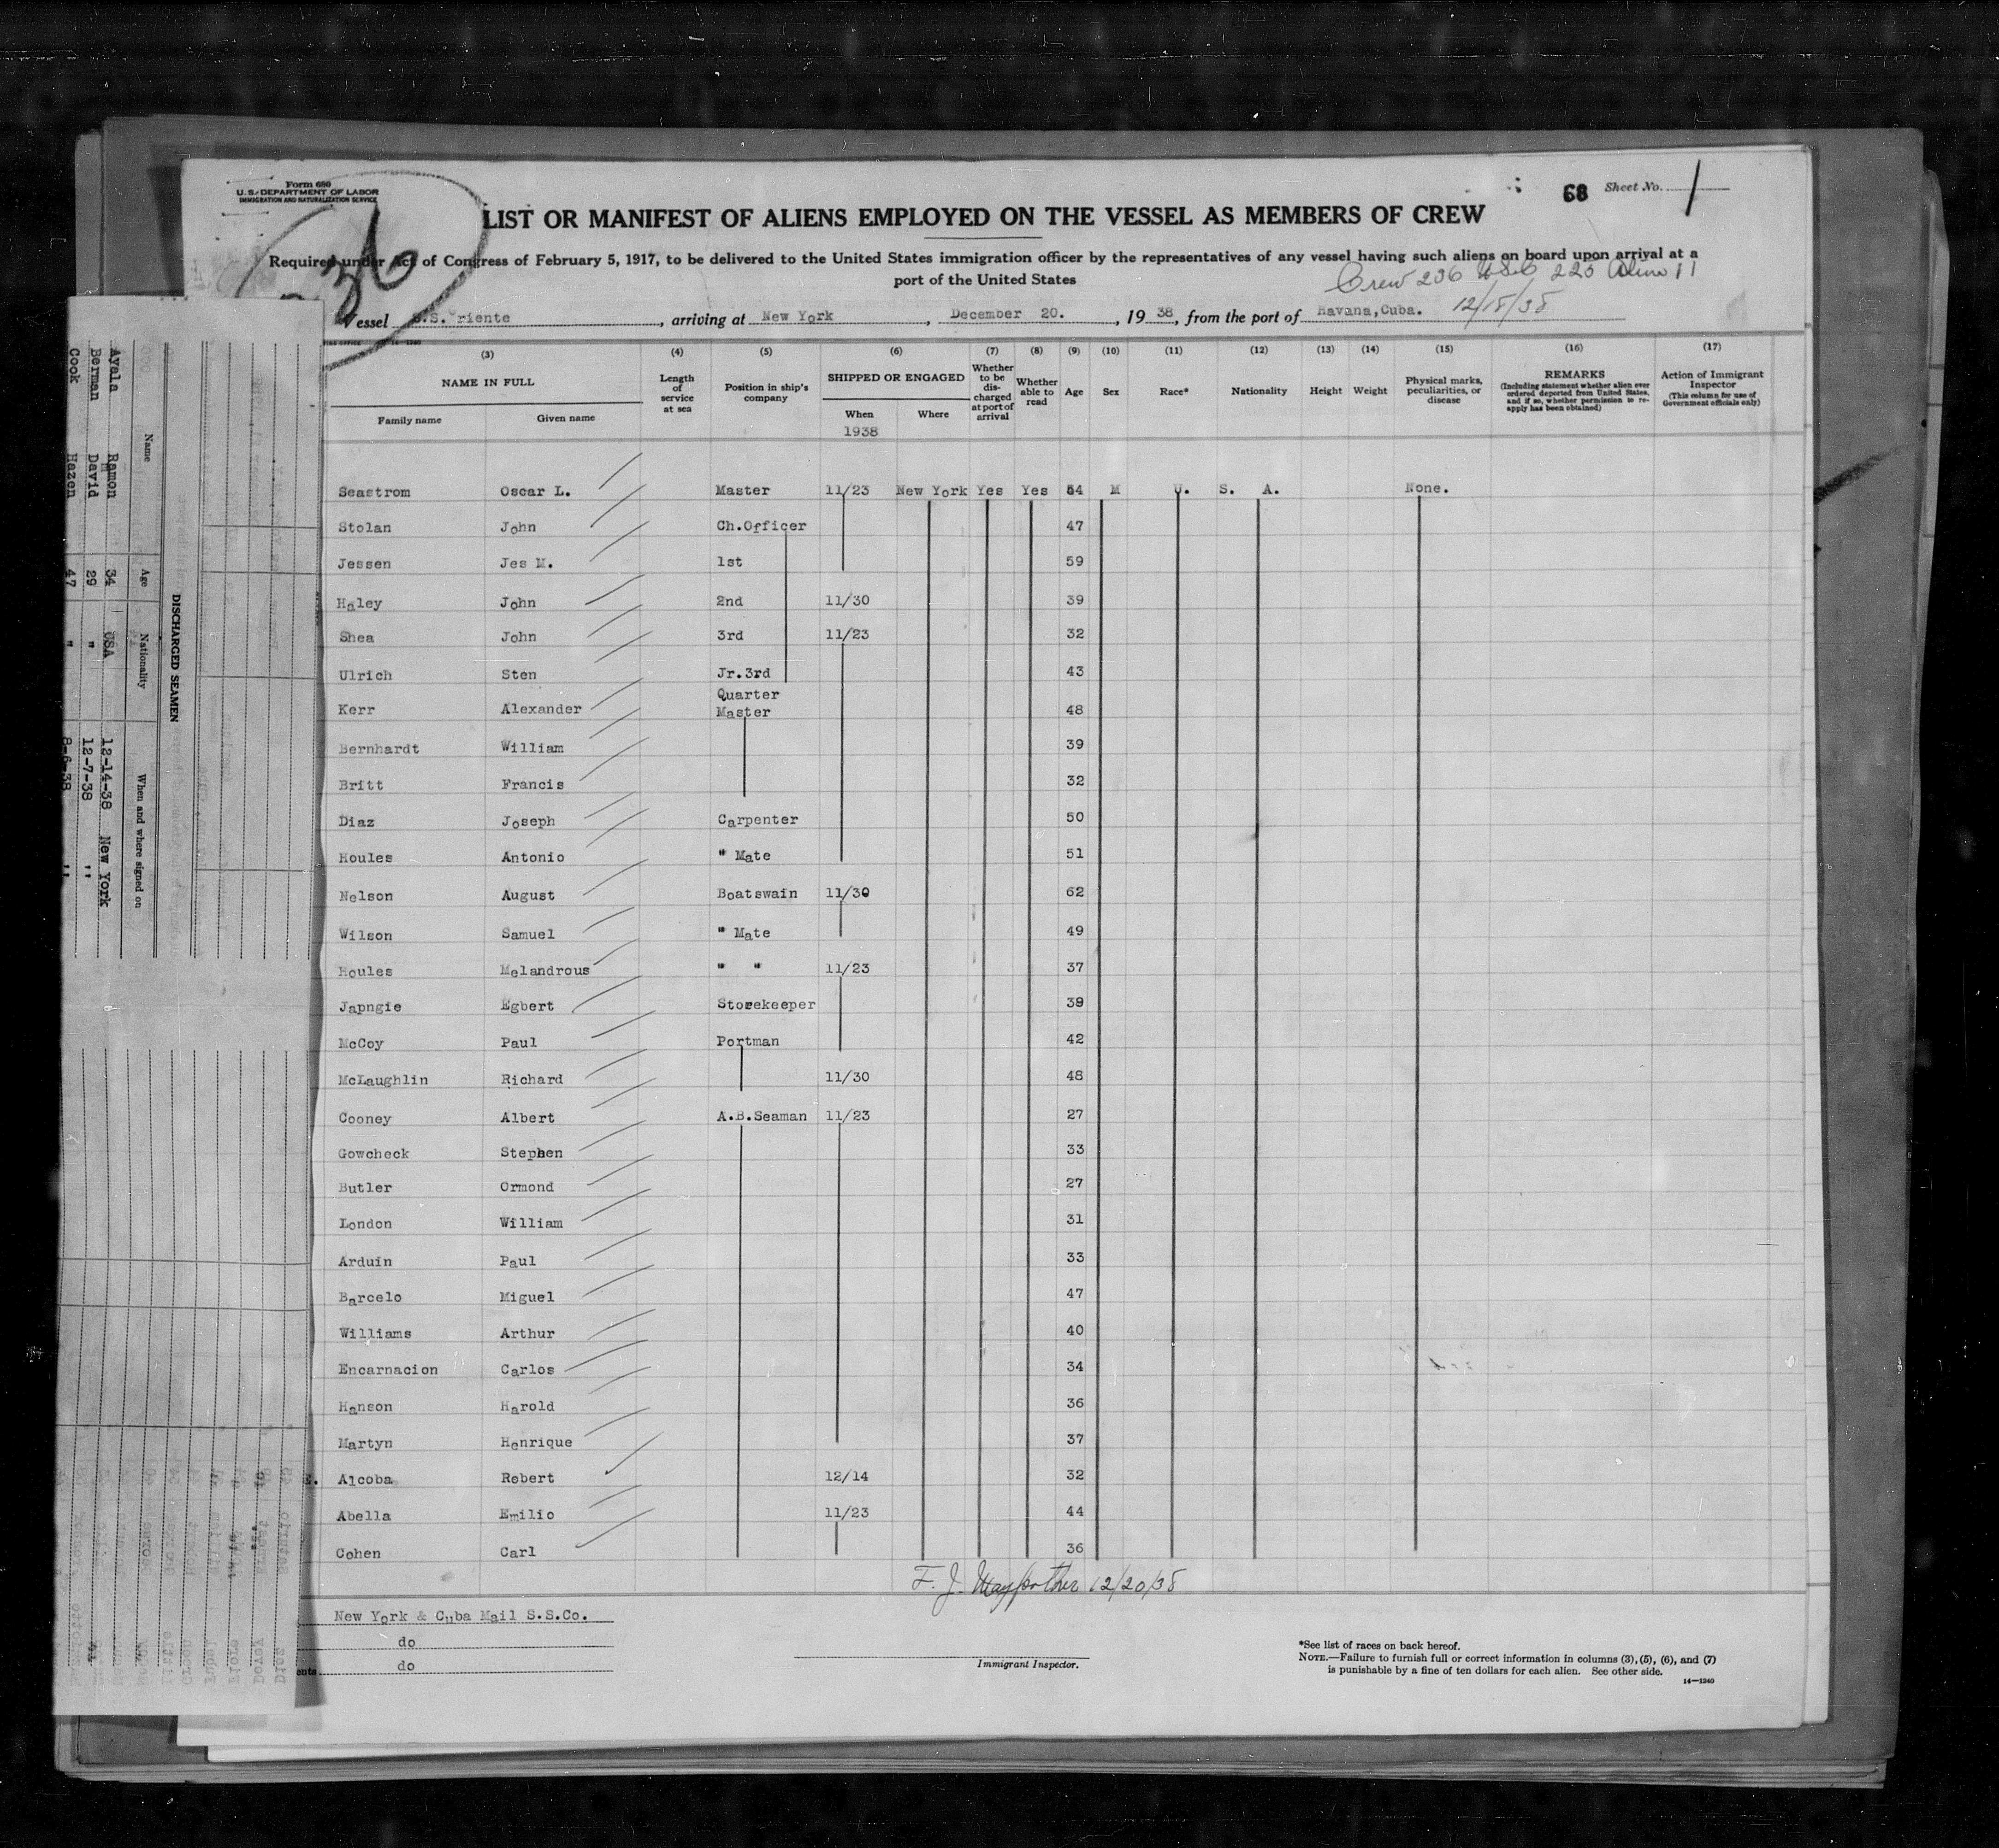 Form 680
U.S. DEPARTMENT OF LABOR
IMMIGRATION AND NATURALIZATION SERVICE
36
68 Sheet No. 1
LIST OR MANIFEST OF ALIENS EMPLOYED ON THE VESSEL AS MEMBERS OF CREW
Required under Act of Congress of February 5, 1917, to be delivered to the United States immigration officer by the representatives of any vessel having such aliens on board upon arrival at a
port of the United States
Crew 236 USC 225 Alien 11
Vessel S.S. riente, arriving at New York, December 20., 1938, from the port of Havana,Cuba. 12/18/38
(3) (4) (5) (6) (7) (8) (9) (10) (11) (12) (13) (14) (15) (16) (17)
NAME IN FULL Length of service at sea Position in ship's company SHIPPED OR ENGAGED Whether to be discharged at port of arrival Whether able to read Age Sex Race* Nationality Height Weight Physical marks, peculiarities, or disease REMARKS (Including statement whether alien ever ordered deported from United States, and if so, whether permission to reapply has been obtained) Action of Immigrant Inspector (This column for use of Government officials only)
Family name Given name When Where
1938
Seastrom Oscar L. Master 11/23 New York Yes Yes 54 M U. S. A. None.
Stolan John Ch.Officer 47
Jessen Jes M. 1st 59
Haley John 2nd 11/30 39
Shea John 3rd 11/23 32
Ulrich Sten Jr.3rd 43
Kerr Alexander Quarter Master 48
Bernhardt William 39
Britt Francis 32
Diaz Joseph Carpenter 50
Houles Antonio " Mate 51
Nelson August Boatswain 11/30 62
Wilson Samuel " Mate 49
Houles Melandrous " " 11/23 37
Japngie Egbert Storekeeper 39
McCoy Paul Portman 42
McLaughlin Richard 11/30 48
Cooney Albert A.B.Seaman 11/23 27
Gowcheck Stephen 33
Butler Ormond 27
London William 31
Arduin Paul 33
Barcelo Miguel 47
Williams Arthur 40
Encarnacion Carlos 34
Hanson Harold 36
Martyn Henrique 37
Alcoba Robert 12/14 32
Abella Emilio 11/23 44
Cohen Carl 36
F. J. 12/20/38
New York & Cuba Mail S.S.Co.
do
do
Immigrant Inspector.
*See list of races on back hereof.
NOTE.—Failure to furnish full or correct information in columns (3), (5), (6), and (7)
is punishable by a fine of ten dollars for each alien. See other side.
14—1240
DISCHARGED SEAMEN
Name Age Nationality When and where signed on
Ayala Ramon 34 USA 12-14-38 New York
Berman David 29 " 12-7-38 "
Cook Hazen 47 " 8-6-38 "